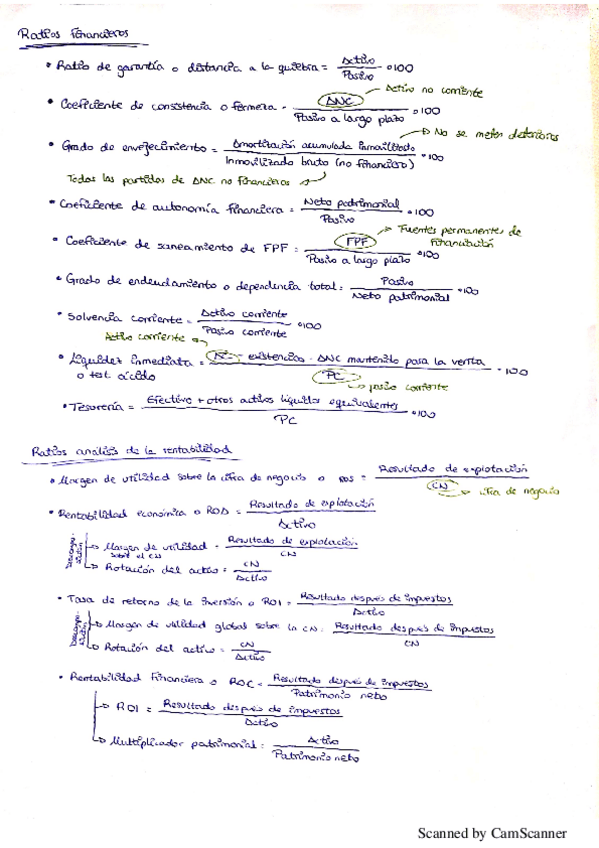 Ratios Financieros
• Ratio de garantía o distancia a la quiebra = Activo / Pasivo · 100
→ Activo no corriente
• Coeficiente de consistencia o firmeza = ANC / Pasivo a largo plazo · 100
→ No se meten deterioros
• Grado de envejecimiento = Amortización acumulada inmovilizado / Inmovilizado bruto (no financiero) · 100
Todas las partidas de ANC no financieros
• Coeficiente de autonomía financiera = Neto patrimonial / Pasivo · 100
→ Fuentes permanentes de financiación
• Coeficiente de saneamiento de FPF = FPF / Pasivo a largo plazo · 100
• Grado de endeudamiento o dependencia total = Pasivo / Neto patrimonial · 100
• Solvencia corriente = Activo corriente / Pasivo corriente · 100
Activo corriente
• Liquidez inmediata o test ácido = AC - existencias - ANC mantenido para la venta / PC · 100
→ pasivo corriente
• Tesorería = Efectivo + otros activos líquidos equivalentes / PC · 100
Ratios análisis de la rentabilidad
• Margen de utilidad sobre la cifra de negocio o ROS = Resultado de explotación / CN
→ cifra de negocio
• Rentabilidad económica o ROA = Resultado de explotación / Activo
Descomposición
→ Margen de utilidad sobre el CN = Resultado de explotación / CN
→ Rotación del activo = CN / Activo
• Tasa de retorno de la inversión o ROI = Resultado después de impuestos / Activo
Descomposición
→ Margen de utilidad global sobre la CN = Resultado después de impuestos / CN
→ Rotación del activo = CN / Activo
• Rentabilidad financiera o ROC = Resultado después de impuestos / Patrimonio neto
→ ROI = Resultado después de impuestos / Activo
→ Multiplicador patrimonial = Activo / Patrimonio neto
Scanned by CamScanner